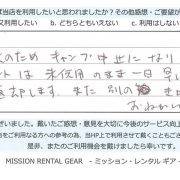 ば当店を利用したいと思われましたか?その他感想・ご要望が
利用したい b. どちらともいえない c. 利用はしない
のため キャンプ中止になり
は 未使用のまま一日早
返却します。また 別の
おねがい
ざいました。戴いたご感想、意見を大切に今後のサービス向上
なる方への参考の為、当HP上で利用させて戴くこともござ
是非、またのご利用機会を戴けましたら幸いです。
MISSION RENTAL GEAR - ミッション・レンタル ギア -